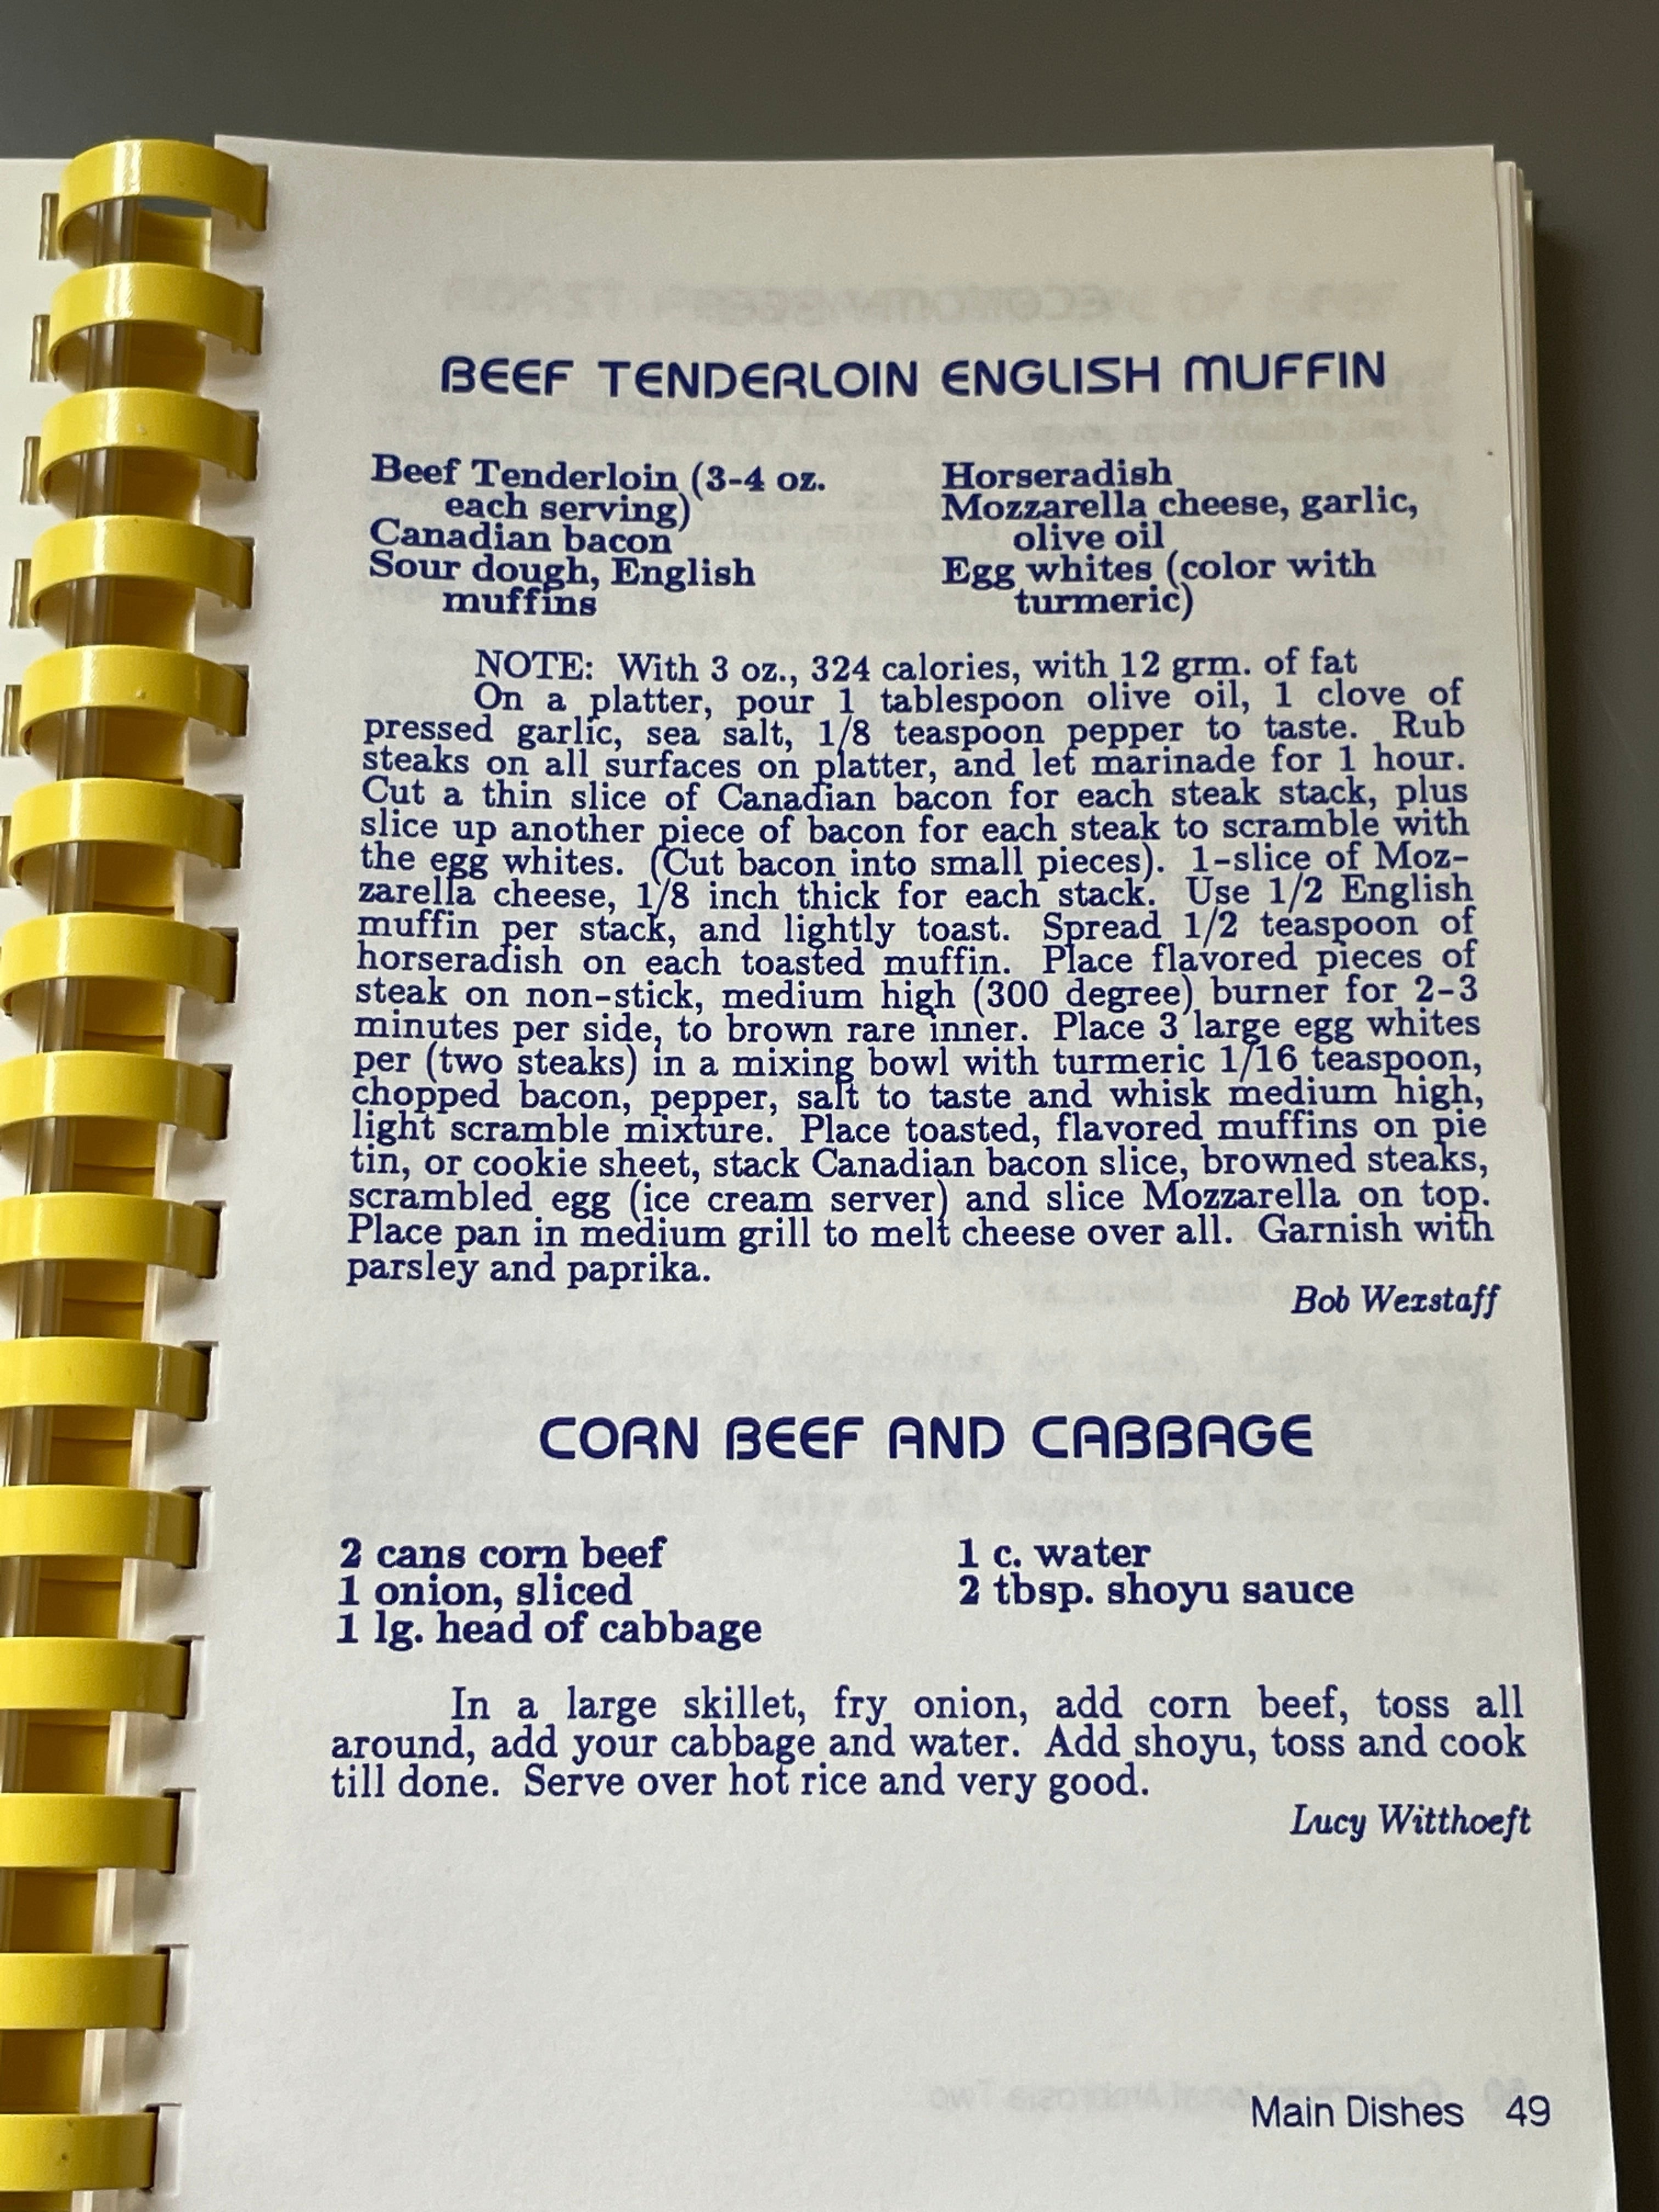 BEEF TENDERLOIN ENGLISH MUFFIN
Beef Tenderloin (3-4 oz.
each serving)
Canadian bacon
Sour dough, English
muffins
Horseradish
Mozzarella cheese, garlic,
olive oil
Egg whites (color with
turmeric)
NOTE: With 3 oz., 324 calories, with 12 grm. of fat
On a platter, pour 1 tablespoon olive oil, 1 clove of
pressed garlic, sea salt, 1/8 teaspoon pepper to taste. Rub
steaks on all surfaces on platter, and let marinade for 1 hour.
Cut a thin slice of Canadian bacon for each steak stack, plus
slice up another piece of bacon for each steak to scramble with
the egg whites. (Cut bacon into small pieces). 1-slice of Moz-
zarella cheese, 1/8 inch thick for each stack. Use 1/2 English
muffin per stack, and lightly toast. Spread 1/2 teaspoon of
horseradish on each toasted muffin. Place flavored pieces of
steak on non-stick, medium high (300 degree) burner for 2-3
minutes per side, to brown rare inner. Place 3 large egg whites
per (two steaks) in a mixing bowl with turmeric 1/16 teaspoon,
chopped bacon, pepper, salt to taste and whisk medium high,
light scramble mixture. Place toasted, flavored muffins on pie
tin, or cookie sheet, stack Canadian bacon slice, browned steaks,
scrambled egg (ice cream server) and slice Mozzarella on top.
Place pan in medium grill to melt cheese over all. Garnish with
parsley and paprika.
Bob Wexstaff
CORN BEEF AND CABBAGE
2 cans corn beef
1 onion, sliced
1 lg. head of cabbage
1 c. water
2 tbsp. shoyu sauce
In a large skillet, fry onion, add corn beef, toss all
around, add your cabbage and water. Add shoyu, toss and cook
till done. Serve over hot rice and very good.
Lucy Witthoeft
Main Dishes 49